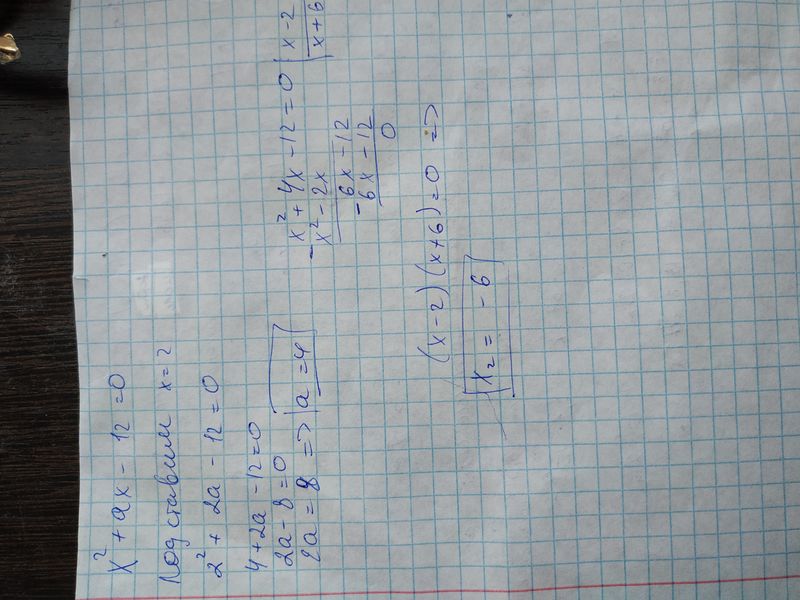 x² + ax - 12 = 0
Подставим x = 2
2² + 2a - 12 = 0
4 + 2a - 12 = 0
2a - 8 = 0
2a = 8 => a = 4
x² + 4x - 12 = 0 | x - 2
x² - 2x | x + 6
6x - 12
6x - 12
0
(x - 2)(x + 6) = 0 =>
x₂ = -6